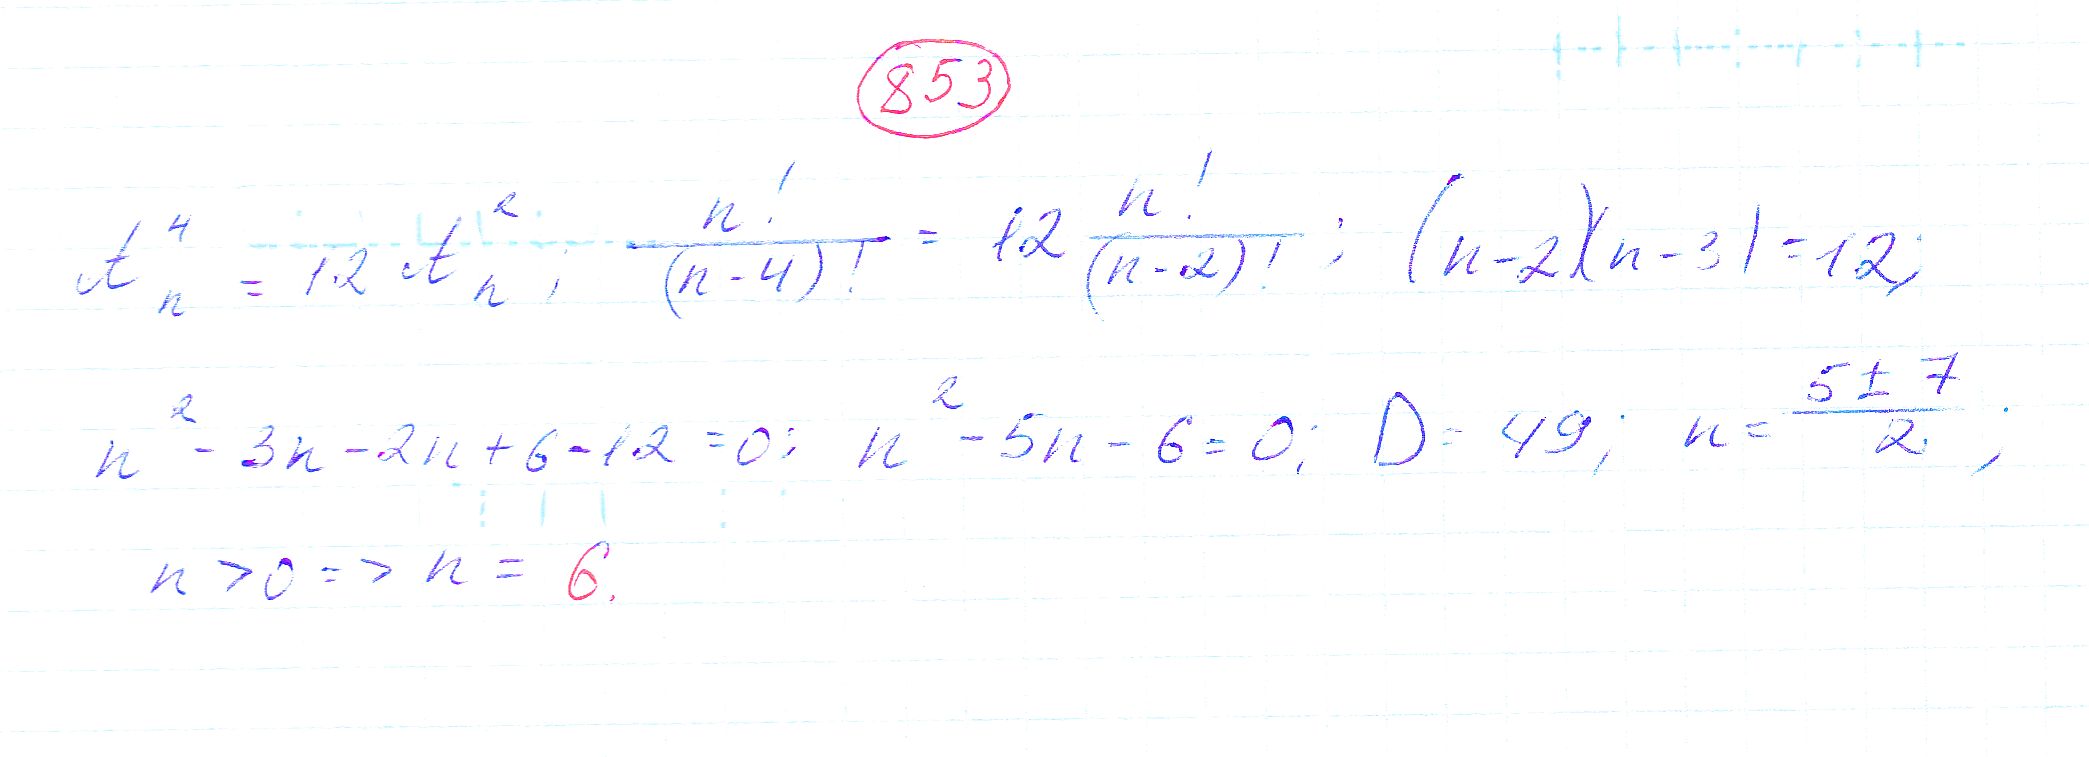 853
A_n^4 = 12 A_n^2; n!/(n-4)! = 12 n!/(n-2)!; (n-2)(n-3) = 12;
n^2 - 3n - 2n + 6 - 12 = 0; n^2 - 5n - 6 = 0; D = 49; n = (5 ± 7)/2;
n > 0 => n = 6.